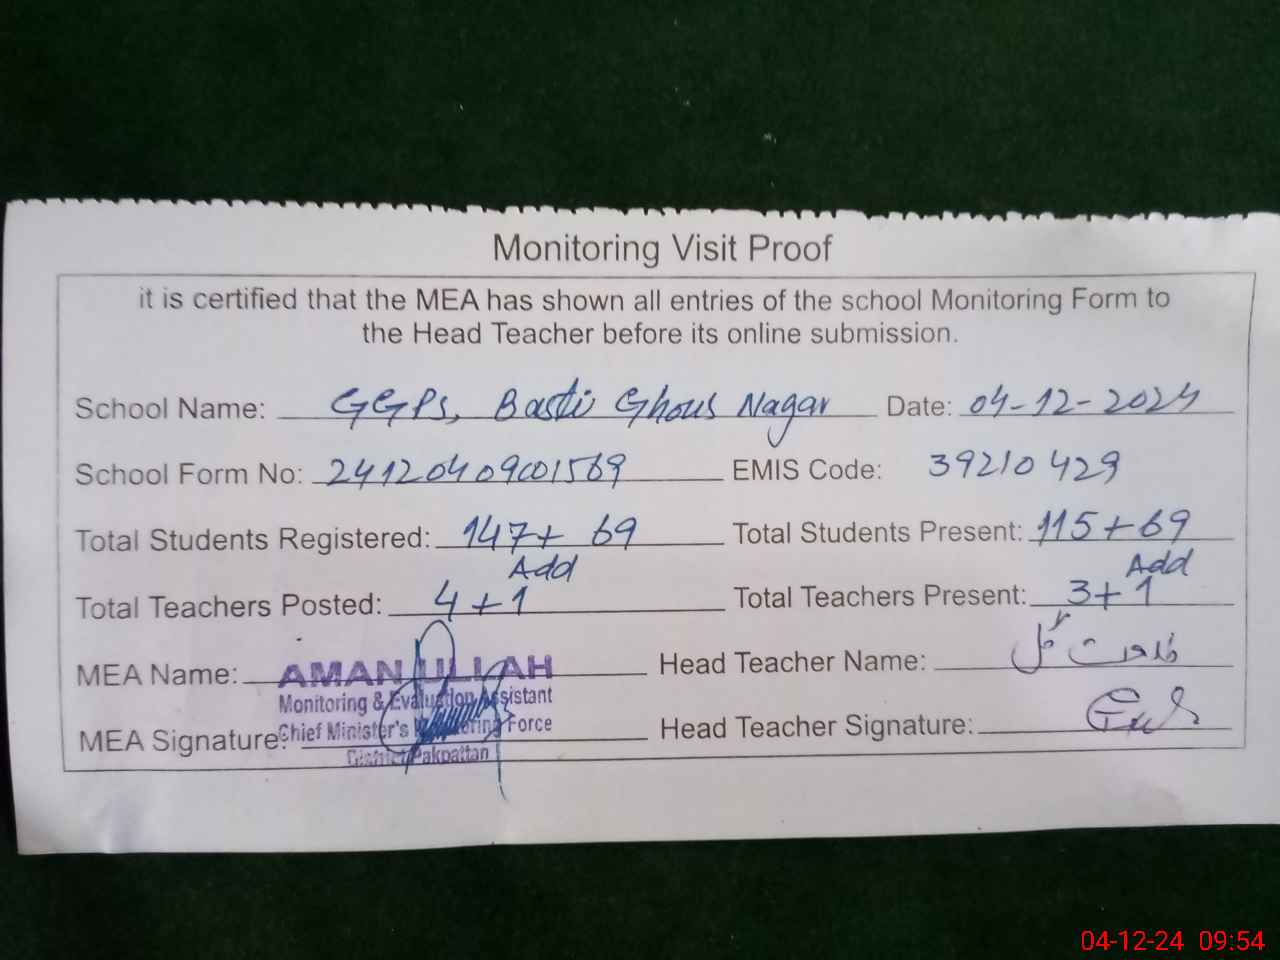 Monitoring Visit Proof
it is certified that the MEA has shown all entries of the school Monitoring Form to
the Head Teacher before its online submission.
School Name: GGPS, Basti Ghous Nagar Date: 04-12-2024
School Form No: 24120409001569 EMIS Code: 39210429
Total Students Registered: 147+ 69 Total Students Present: 115+69
Add Add
Total Teachers Posted: 4+1 Total Teachers Present: 3+1
MEA Name: AMAN ULLAH Head Teacher Name: گل
Monitoring & Evaluation Assistant
Chief Minister's Monitoring Force
MEA Signature: Head Teacher Signature: Gul
District Pakpattan
04-12-24 09:54